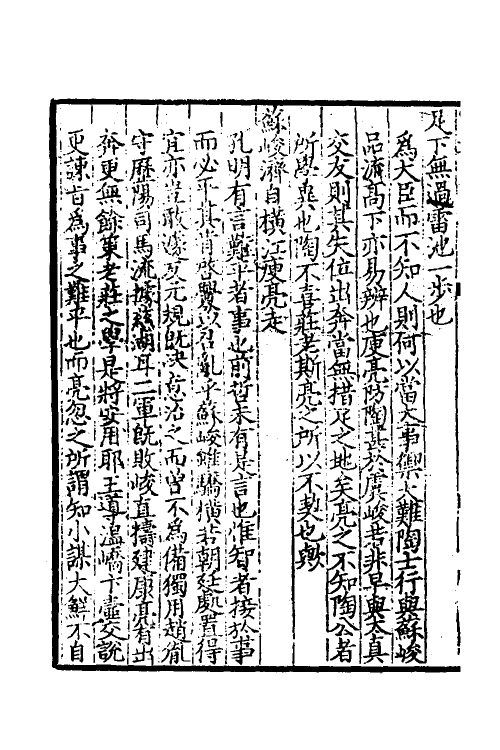 足下無過雷池一步也
為大臣而不知人則何以當大事禦大難陶士行與蘇峻
品流高下亦易辨也庾亮防陶甚於虞峻若非早與太真
交友則其失位出奔當無措足之地矣亮之不知陶公者
所學異也陶不喜莊老斯亮之所以不契也歟
蘇峻濟自橫江庾亮走
孔明有言難平者事也前哲未有是言也惟智者接於事
而必平其肯啓釁以召亂乎蘇峻雖驕橫若朝廷處置得
宜亦豈敢遽反元規旣決意治之而曾不為備獨用趙胤
守歷陽司馬流據慈湖耳二軍旣敗峻直擣建康亮宵出
奔更無餘策老莊之學是將安用耶王導溫嶠卞壼交說
更諫旨為事之難平也而亮忽之所謂知小謀大鮮不自